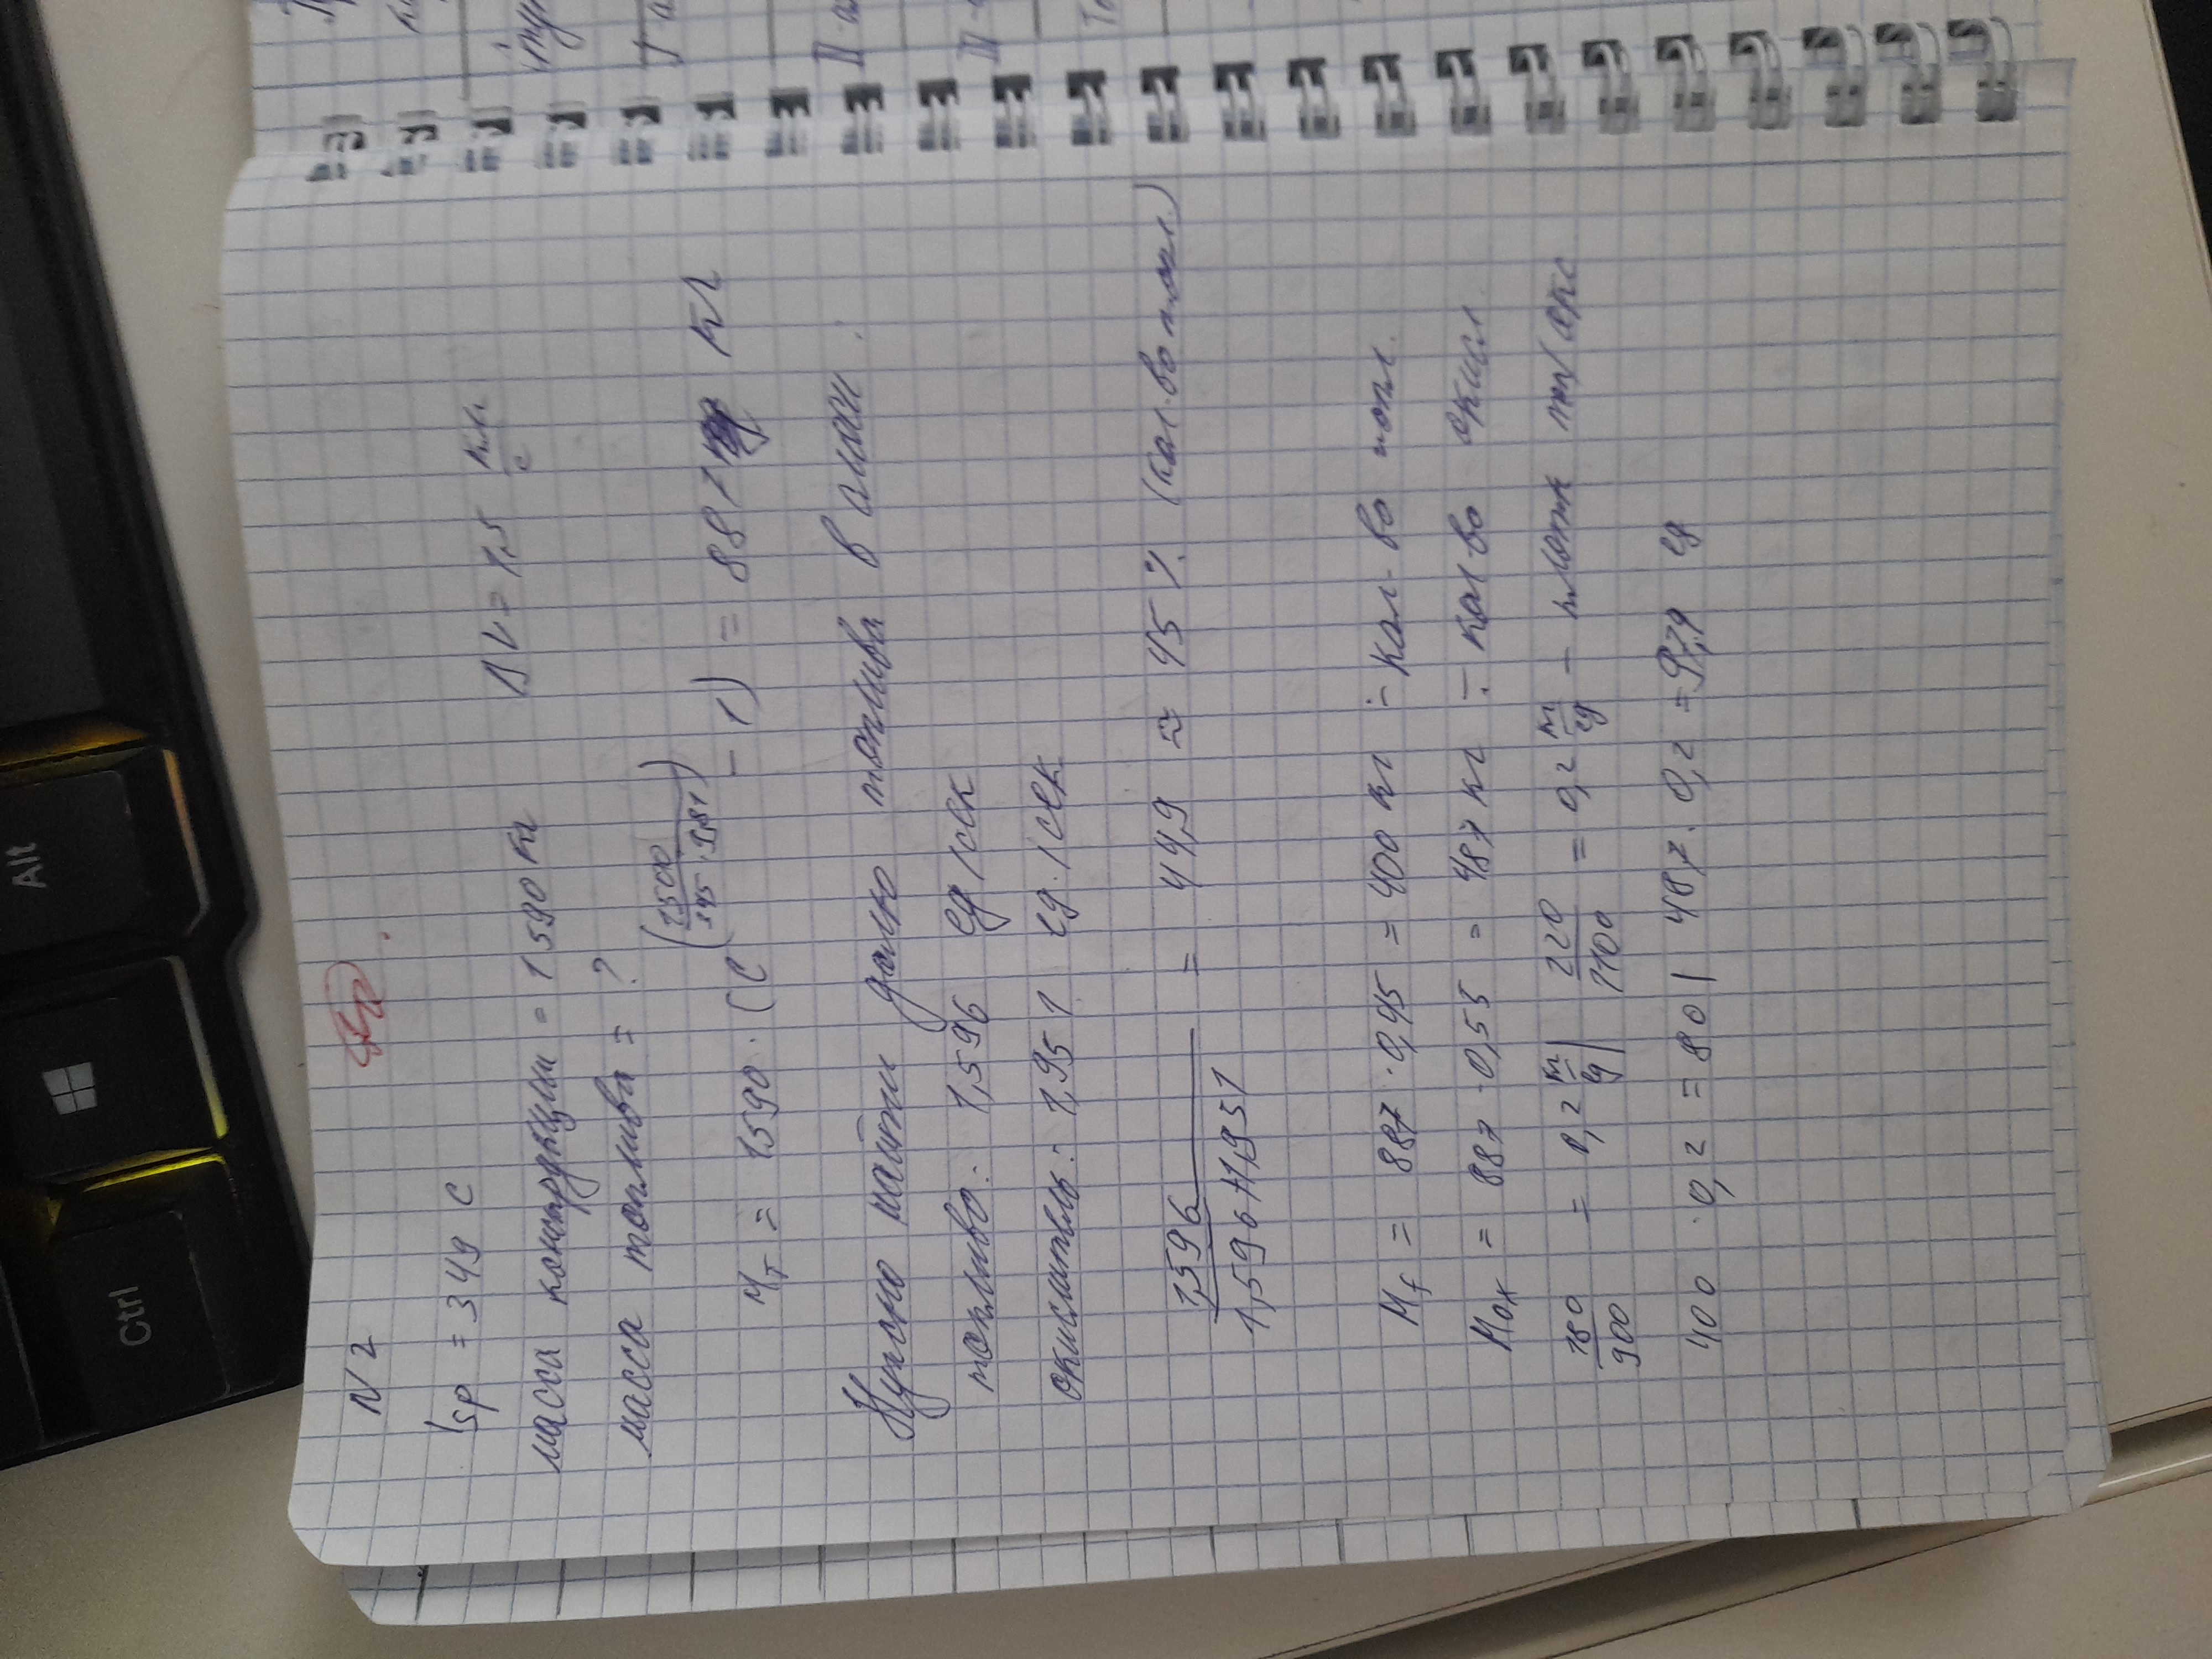 Ctrl
Alt
N 2
Isp = 349 С
ΔV = 1,5 км/с
масса конструкции = 1590 кг
масса топлива = ?
Mт = 1590 · (e^(1500/345 · 9,81) - 1) = 887 кг
Нужно найти долю топлива в смеси:
топливо: 1,596 ед/сек
окислитель: 1,951 ед./сек
1,596/1,596+1,951 = 44,9 ≈ 45 % (кол-во топл.)
Mf = 887 · 0,45 = 400 кг - кол-во топл.
Mox = 887 · 0,55 = 487 кг - кол-во окисл
180/900 = 0,2 кг/ед | 220/1100 = 0,2 кг/ед - плотн
400 · 0,2 = 80 | 487 · 0,2 = 97,4 ед
II
III